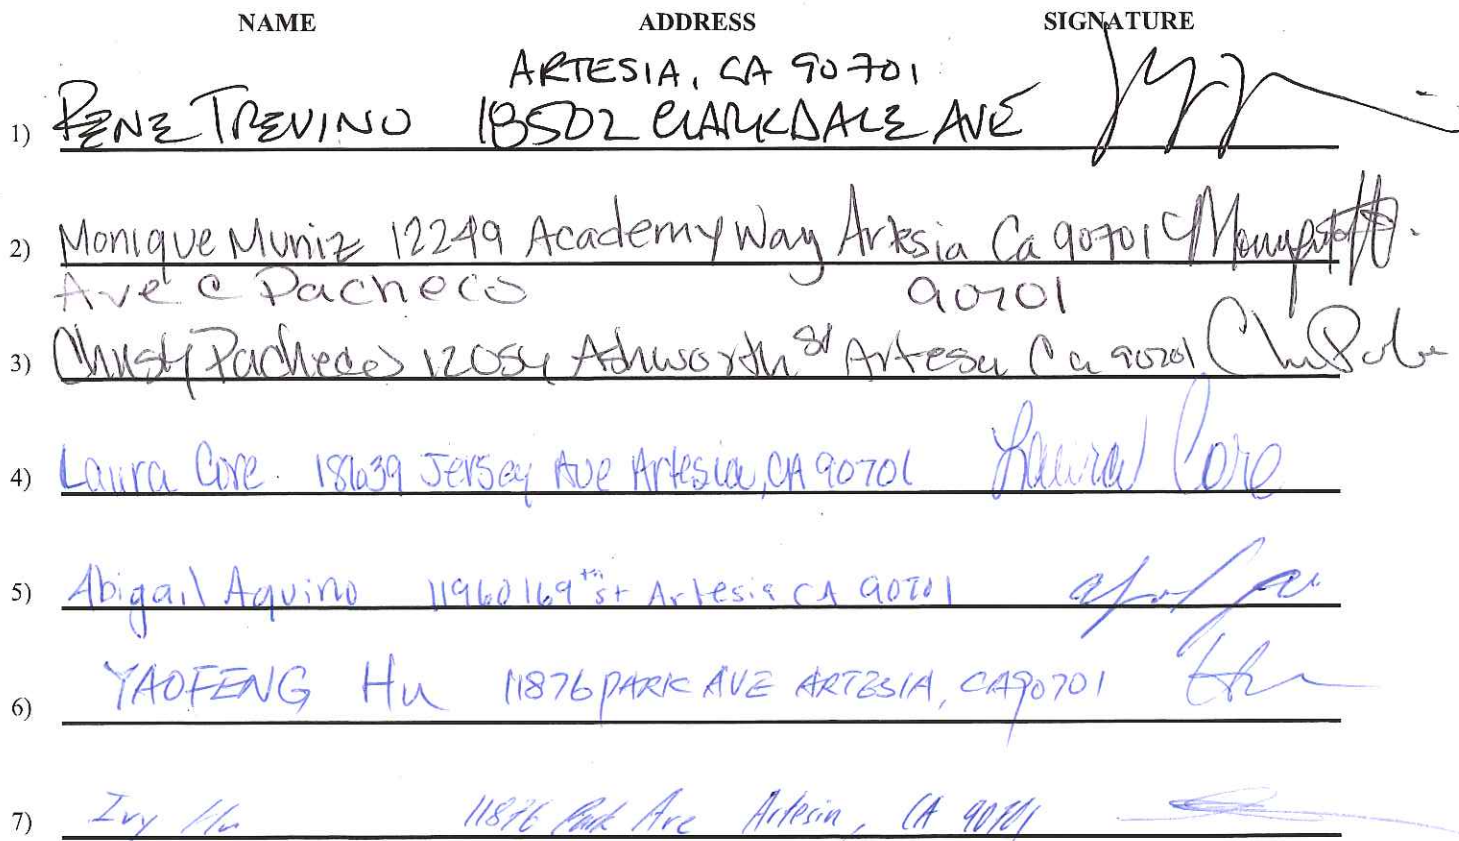 NAME ADDRESS SIGNATURE
ARTESIA, CA 90701
1) RENE TREVINO 18502 CLARKDALE AVE
2) Monique Muniz 12249 Academy Way Artesia Ca 90701
Ave c Pacheco 90701
3) Christy Pacheco 12054 Ashworth St Artesia Ca 90701
4) Laura Core 18639 Jersey Ave Artesia, CA 90701 Laura Core
5) Abigail Aquino 11960 169th St Artesia CA 90701
6) YAOFENG Hu 11876 PARK AVE ARTESIA, CA 90701
7) Ivy Hu 11876 Park Ave Artesia, CA 90701